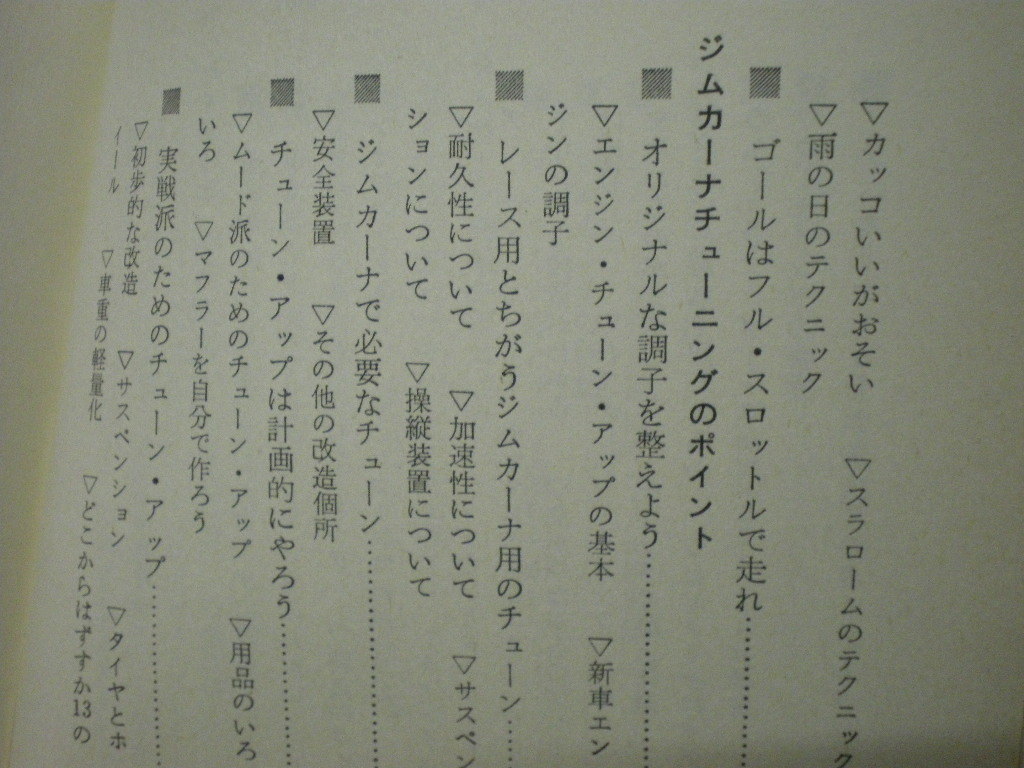 ▽カッコいいがおそい　▽スラロームのテクニック
▽雨の日のテクニック
■ ゴールはフル・スロットルで走れ…………
ジムカーナチューニングのポイント
■ オリジナルな調子を整えよう…………
▽エンジン・チューン・アップの基本　▽新車エン
ジンの調子
■ レース用とちがうジムカーナ用のチューン……
▽耐久性について　▽加速性について　▽サスペン
ションについて　▽操縦装置について
■ ジムカーナで必要なチューン…………
▽安全装置　▽その他の改造個所
■ チューン・アップは計画的にやろう…………
▽ムード派のためのチューン・アップ　▽用品のいろ
いろ　▽マフラーを自分で作ろう
■ 実戦派のためのチューン・アップ…………
▽初歩的な改造　▽サスペンション　▽タイヤとホ
イール　▽車重の軽量化　▽どこからはずすか13の